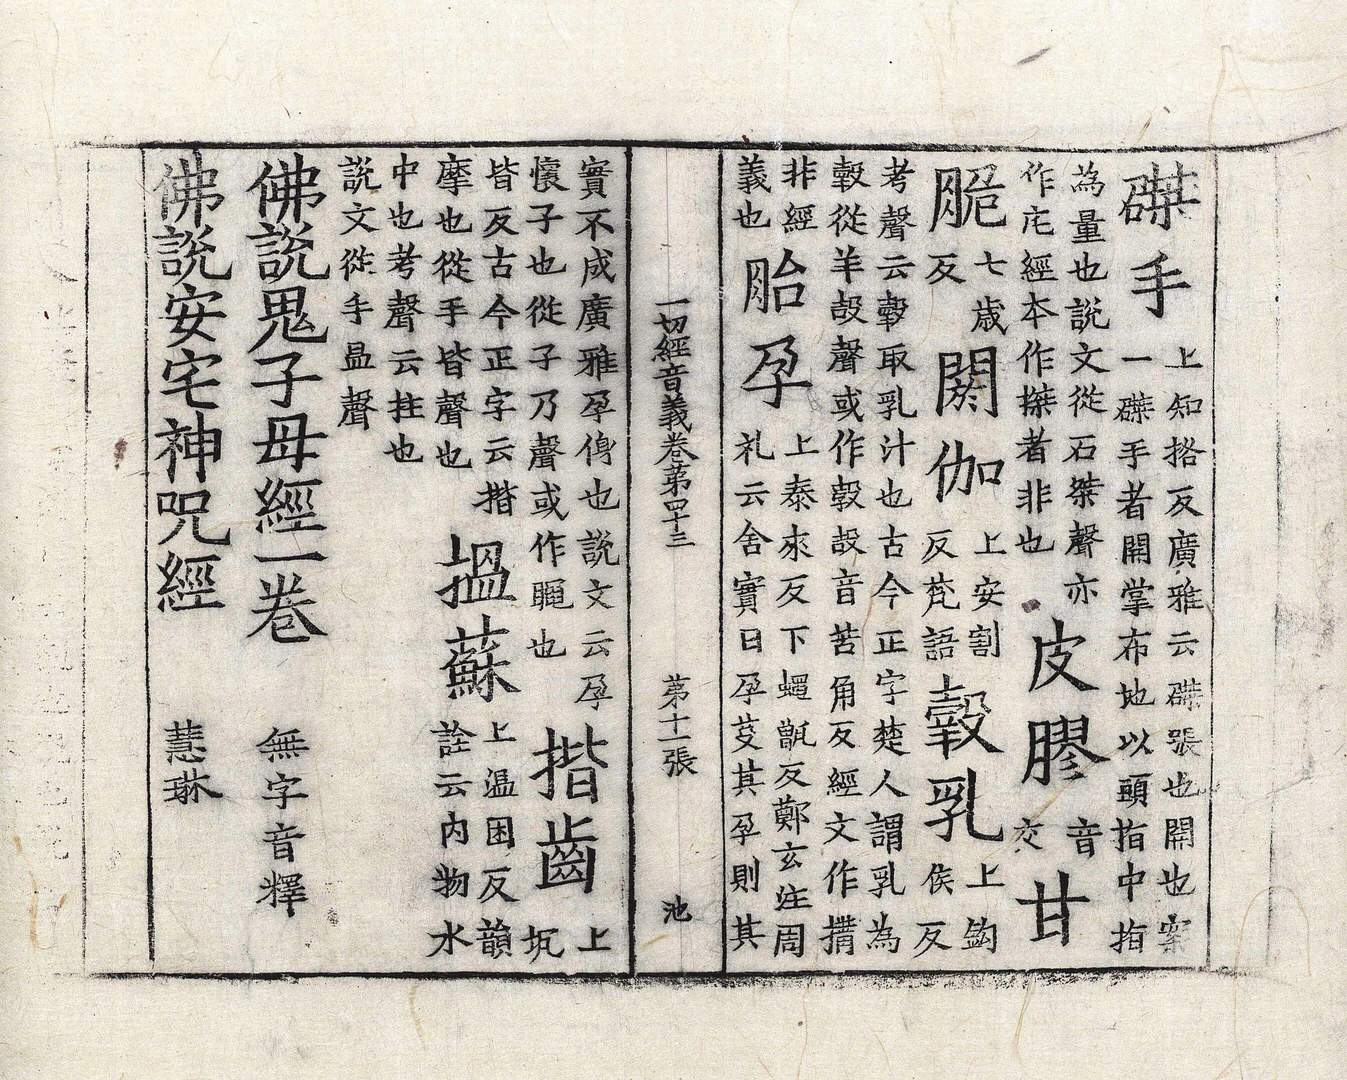 磔手
上知挌反廣雅云磔張也開也案
一磔手者開掌布地以頭指中指
為量也說文從石桀聲亦
作㡯經本作搩者非也
皮膠
音
交
甘
脆
七歲
反
閼伽
上安割
反梵語
㝅乳
上鉤
侯反
考聲云㝅取乳汁也古今正字楚人謂乳為
㝅從羊㱿聲或作㝅㱿音苦角反經文作搆
非經
義也
胎孕
上泰來反下蠅甑反鄭玄注周
礼云含實曰孕芟其孕則其
一切經音義卷苐四十三　苐十一張　池
實不成廣雅孕傳也說文云孕
懷子也從子乃聲或作也
揩齒
上
坑
皆反古今正字云揩
摩也從手皆聲也
搵蘇
上温困反韻
詮云内物水
中也考聲云拄也
說文從手昷聲
佛說鬼子母經一卷　無字音釋
佛說安宅神呪經　慧琳